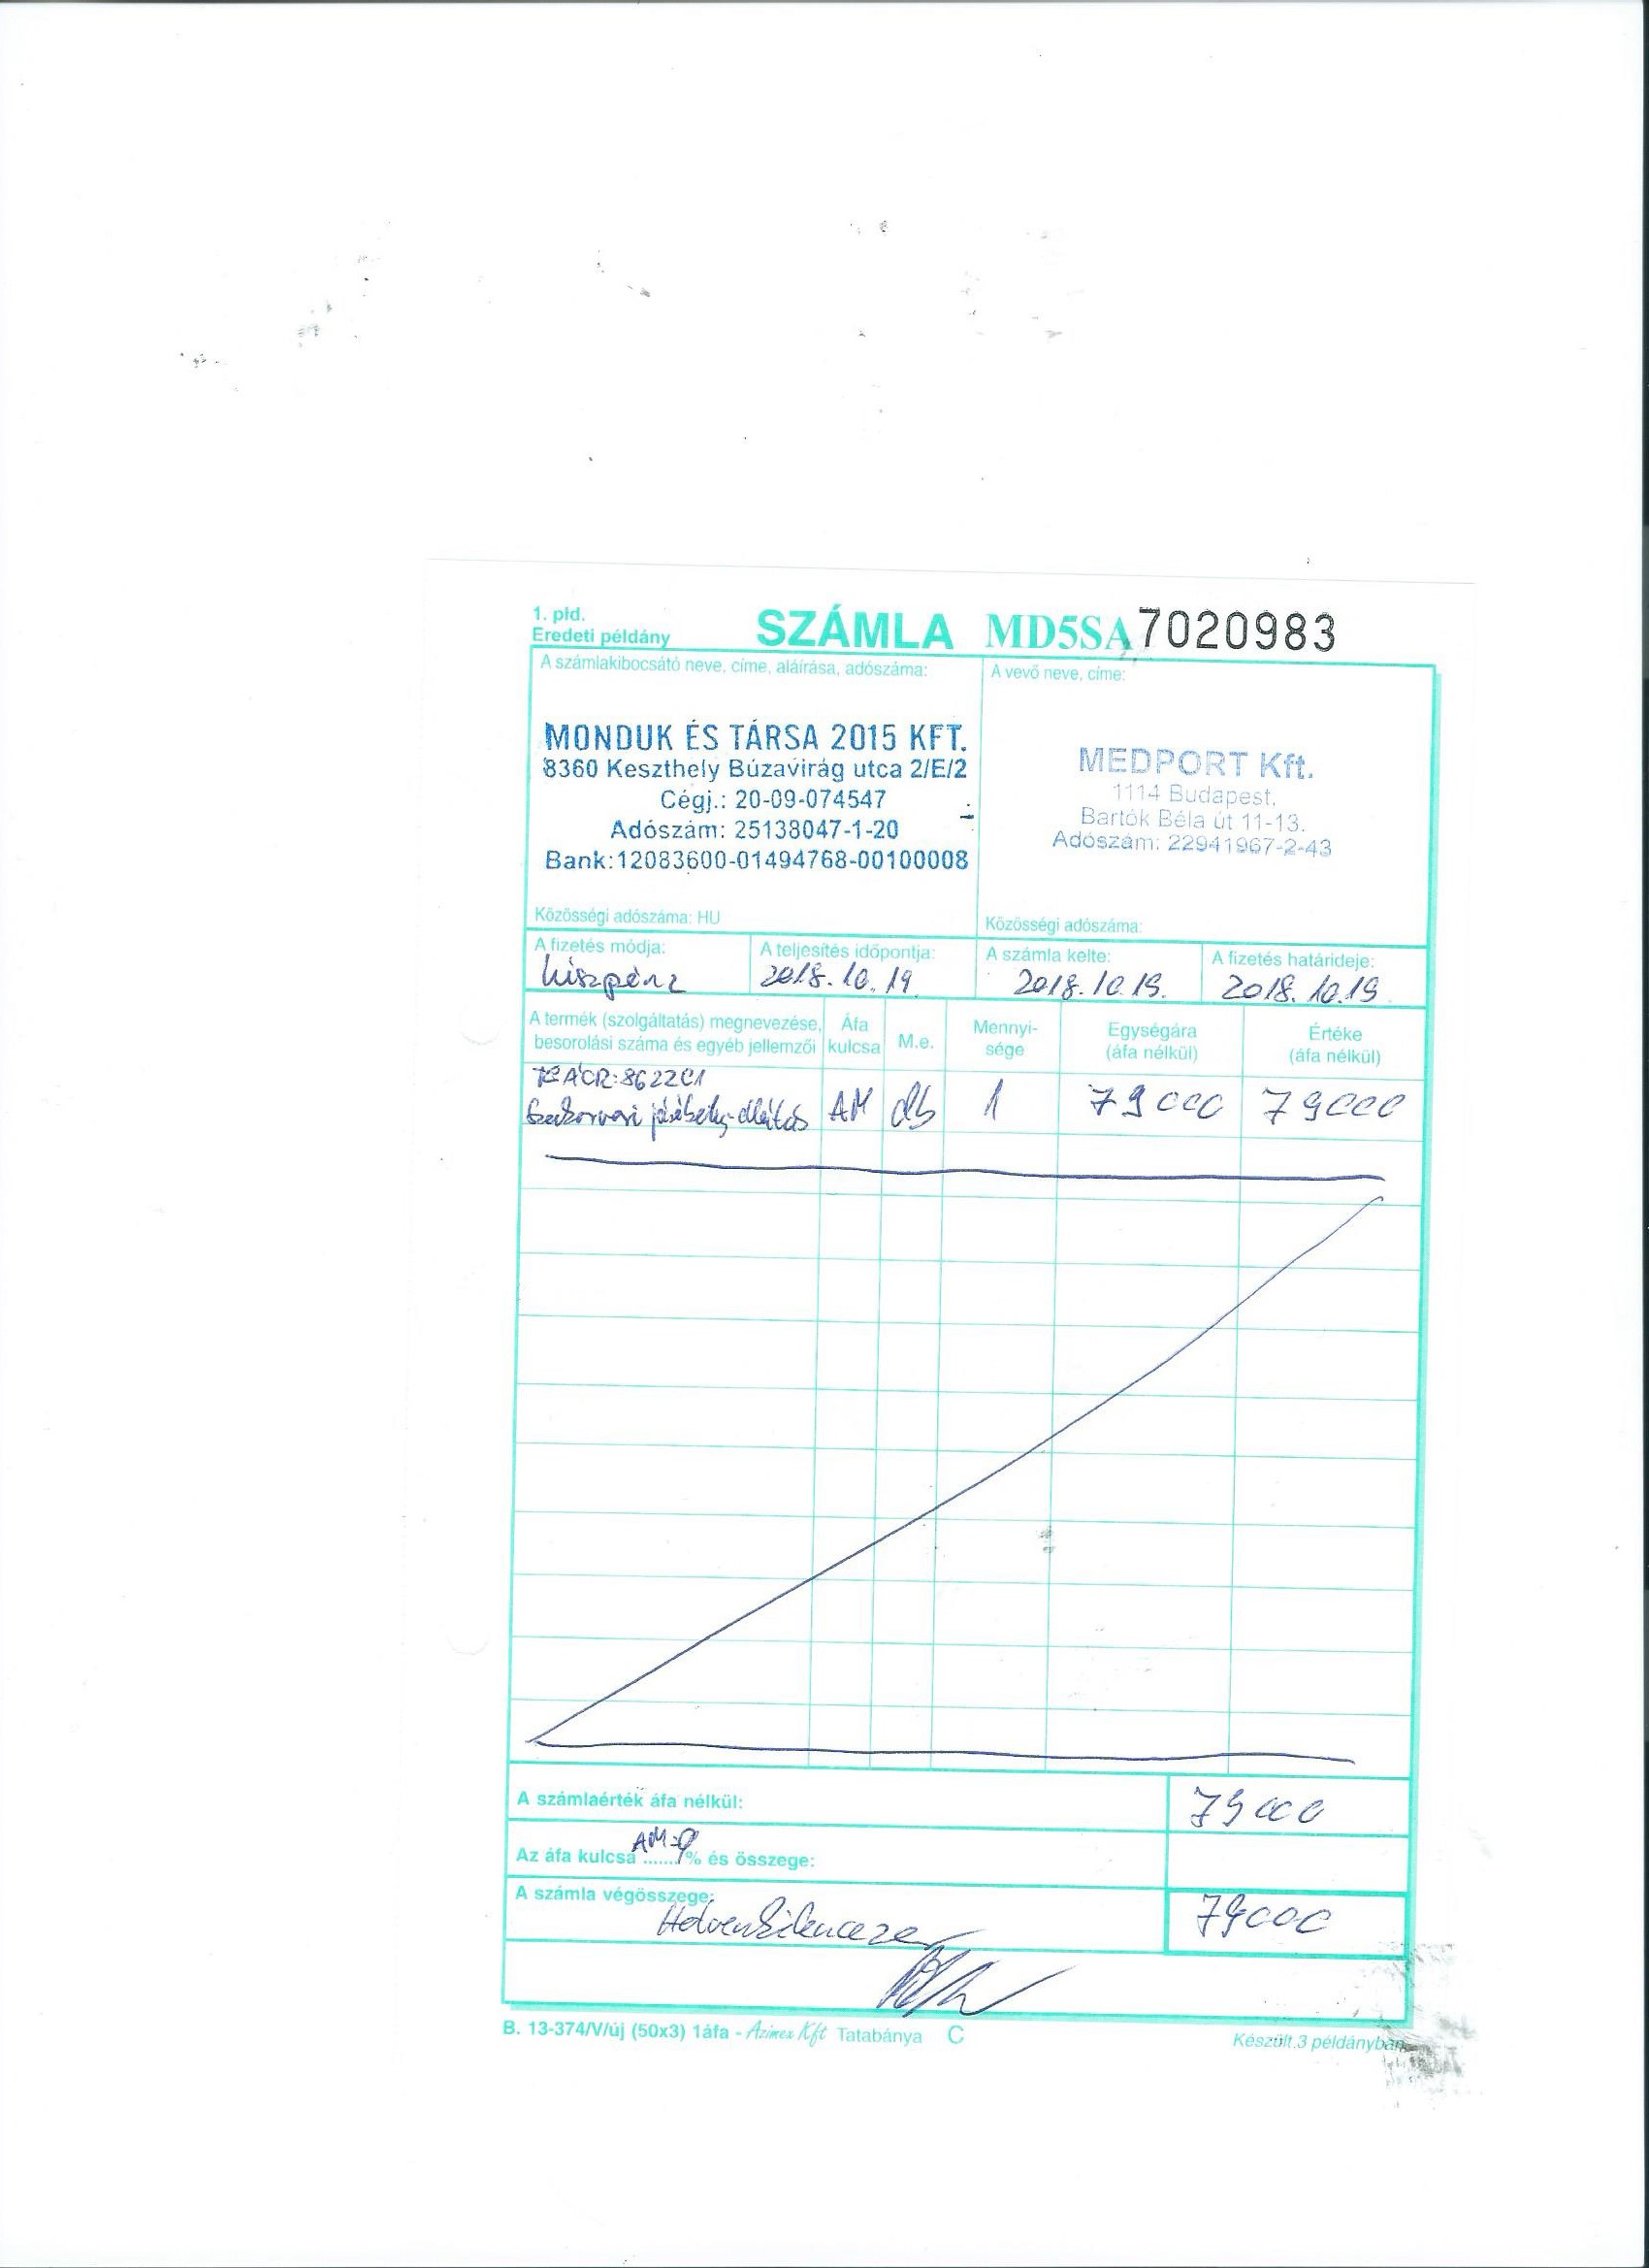 1. pld.
Eredeti példány
SZÁMLA MD5SA 7020983
A számlakibocsátó neve, címe, aláírása, adószáma:
A vevő neve, címe:
MONDUK ÉS TÁRSA 2015 KFT.
8360 Keszthely Búzavirág utca 2/E/2
Cégj.: 20-09-074547
Adószám: 25138047-1-20
Bank:12083600-01494768-00100008
MEDPORT Kft.
1114 Budapest,
Bartók Béla út 11-13.
Adószám: 22941967-2-43
Közösségi adószáma: HU
Közösségi adószáma:
A fizetés módja:
készpénz
A teljesítés időpontja:
2018.10.19.
A számla kelte:
2018.10.19.
A fizetés határideje:
2018.10.19
A termék (szolgáltatás) megnevezése,
besorolási száma és egyéb jellemzői
Áfa
kulcsa
M.e.
Mennyi-
sége
Egységára
(áfa nélkül)
Értéke
(áfa nélkül)
TEÁOR: 862201
Szakorvosi járóbeteg-ellátás AM db 1 79000 79000
A számlaérték áfa nélkül: 79000
AM
Az áfa kulcsa ......% és összege:
A számla végösszege: 79000
Hetvenkilencezer
B. 13-374/V/új (50x3) 1áfa - Azimex Kft Tatabánya C
Készült 3 példányban